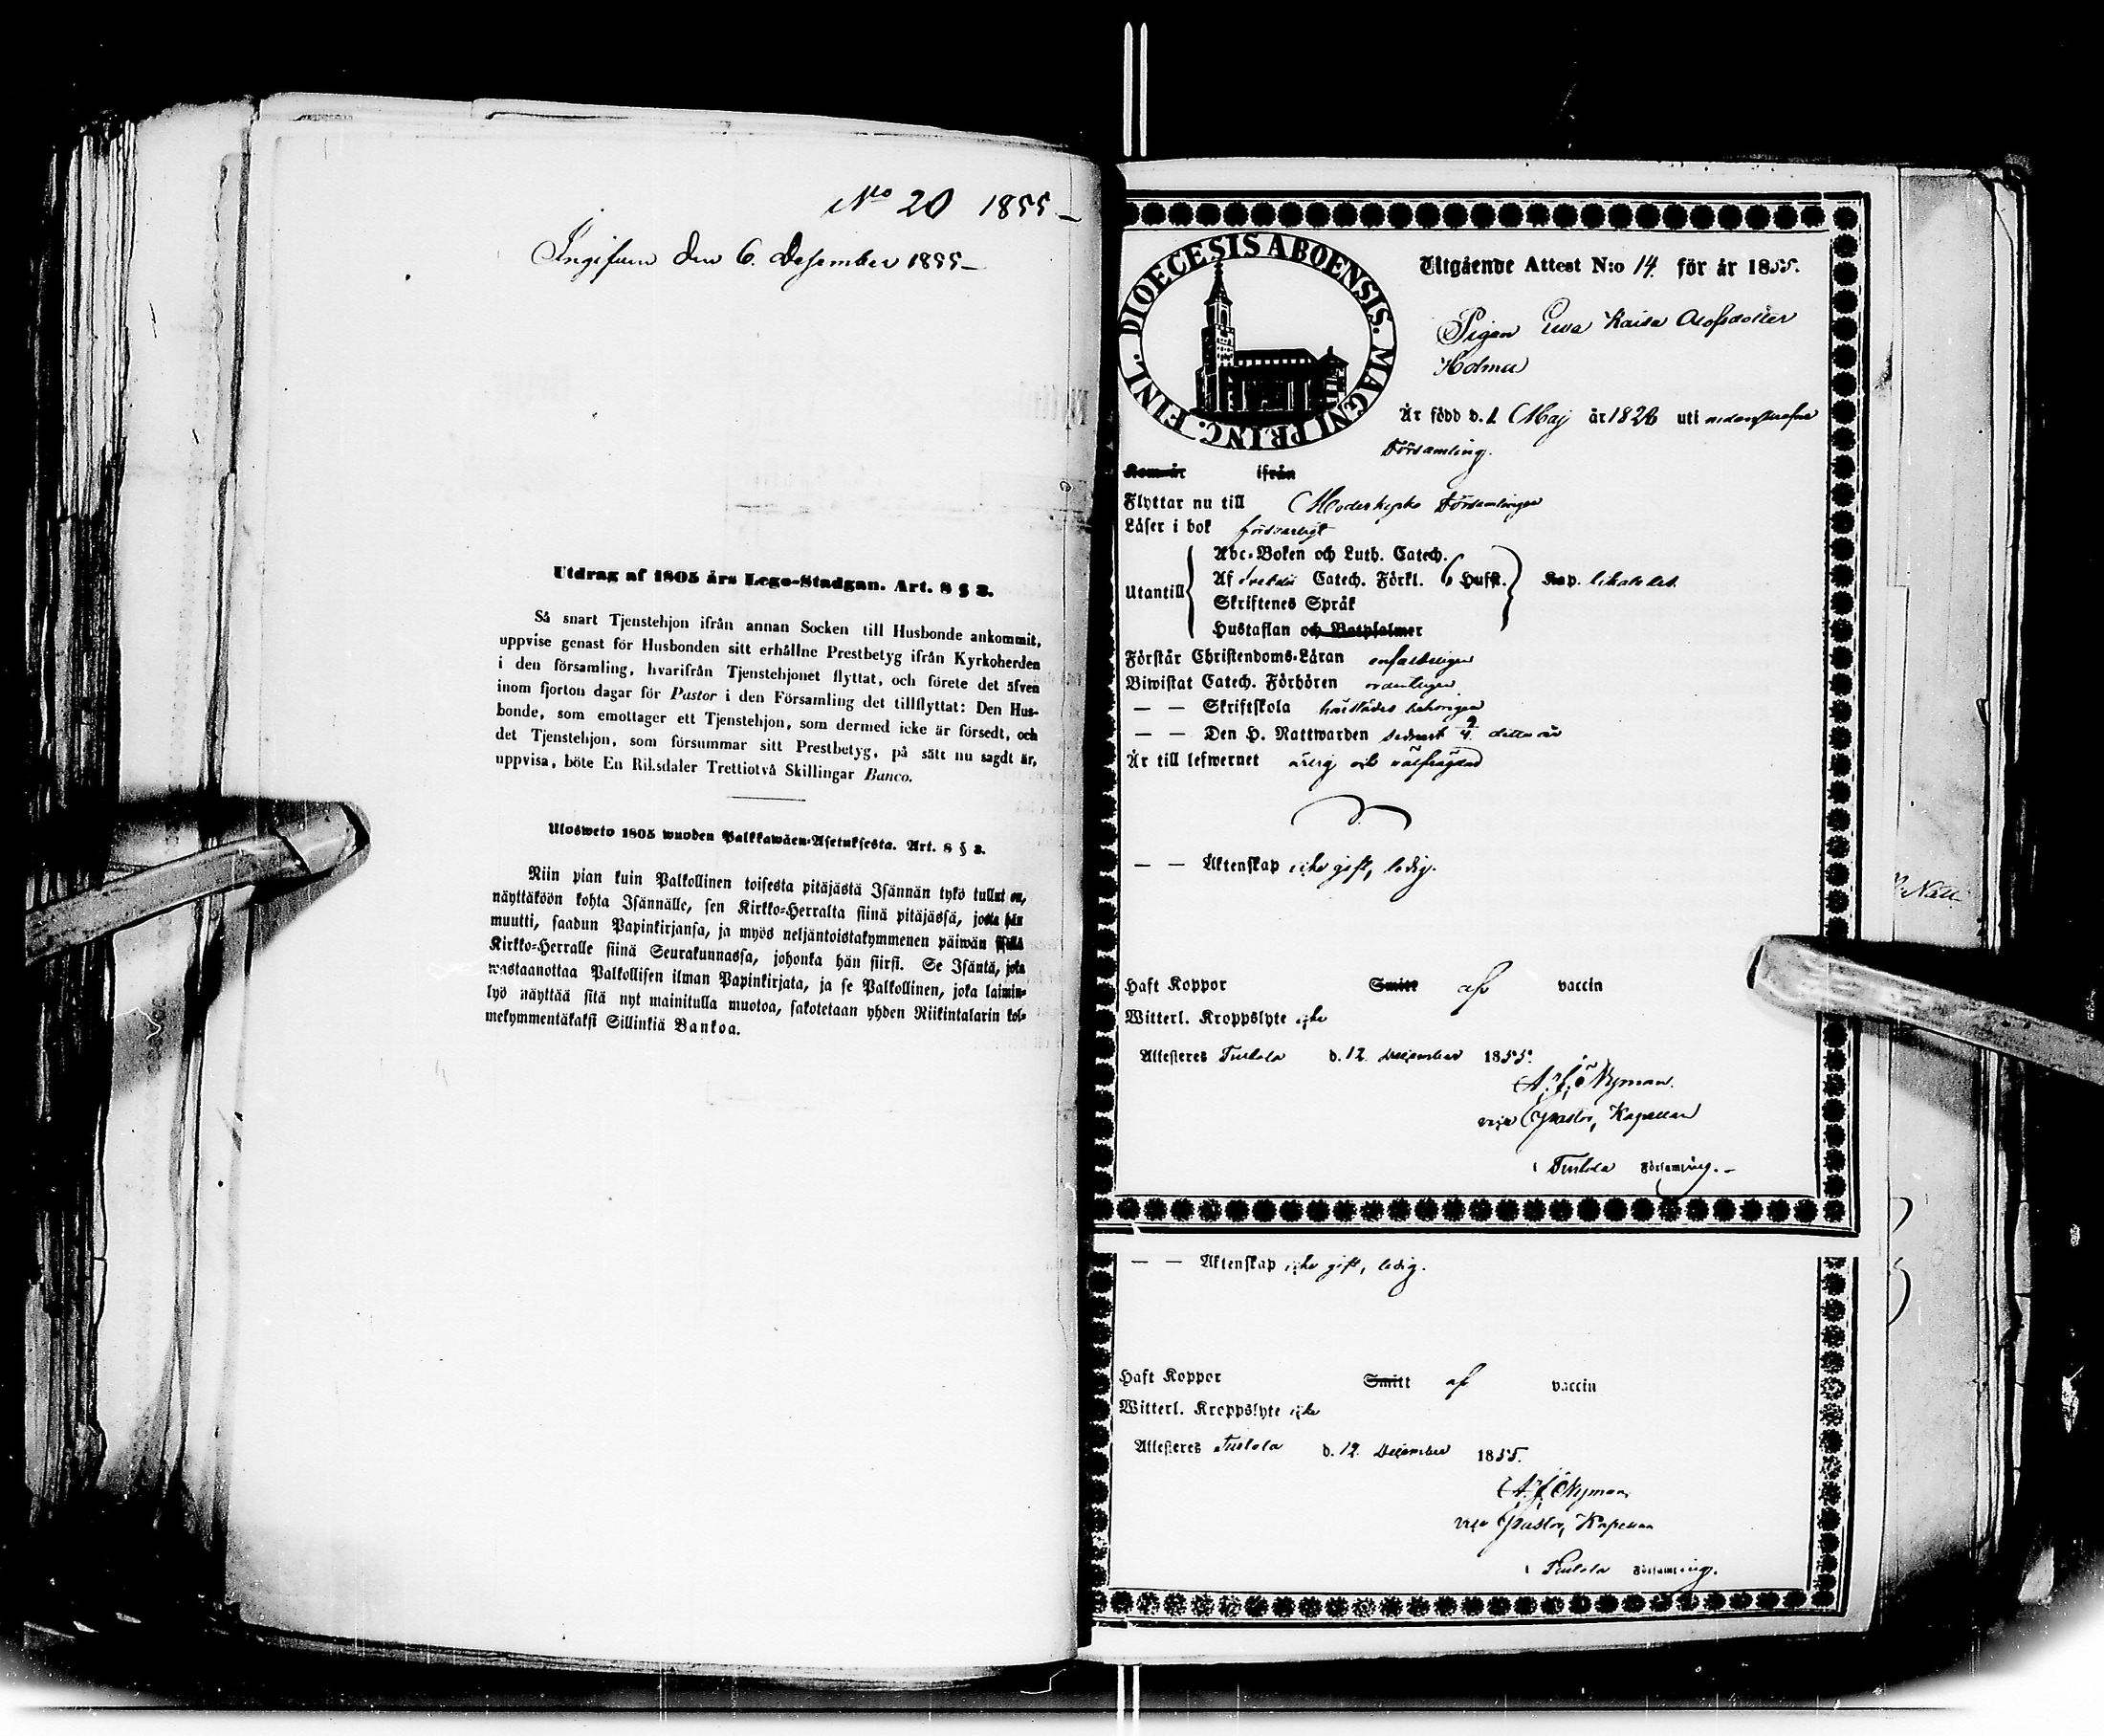 No 20 1855 –
Ingifven den 6. Desember 1855 –
Utdrag af 1805 års Lego-Stadgan. Art. 8 § 3.
Så snart Tjenstehjon ifrån annan Socken till Husbonde ankommit,
uppvise genast för Husbonden sitt erhållne Prestbetyg ifrån Kyrkoherden
i den församling, hvarifrån Tjenstehjonet flyttat, och förete det äfven
inom fjorton dagar för Pastor i den Församling det tillflyttat: Den Hus-
bonde, som emottager ett Tjenstehjon, som dermed icke är försedt, och
det Tjenstehjon, som försummar sitt Prestbetyg, på sätt nu sagdt är,
uppvisa, böte En Riksdaler Trettiotvå Skillingar Banco.
Ulosweto 1805 wuoden Palkkawäen-Asetuksesta. Art. 8 § 3.
Niin pian kuin Palkollinen toisesta pitäjästä Isännän tykö tullut on,
näyttäköön kohta Isännälle, sen Kirkko-Herralta siinä pitäjässä, josta hän
muutti, saadun Papinkirjansa, ja myös neljäntoistakymmenen päiwän sisällä
Kirkko-Herralle siinä Seurakunnassa, johonka hän siirsi. Se Isäntä, joka
wastaanottaa Palkollisen ilman Papinkirjata, ja se Palkollinen, joka laimin-
lyö näyttää sitä nyt mainitulla muotoa, sakotetaan yhden Riikintalarin kol-
mekymmentäkaksi Sillinkiä Bankoa.
DIOECESIS ABOENSIS. MAGNI PRINC. FINL.
Utgående Attest N:o 14. för år 1855.
Pigan Ewa Kaisa Olofsdotter
Holma
Är född d. 1 Maj år 1826 uti
Församling.
Kom år ifrån
Flyttar nu till Moderkyrko Församlingen
Läser i bok försvarligt
Abc-Boken och Luth. Catech.
Utantill Af Svebilii Catech. Förkl. 6 Hufst. Kap. likaledes.
Skriftenes Språk
Hustaflan och Botpsalmer
Förstår Christendoms-Läran enfaldeligen
Biwistat Catech. Förhören ordentligen
— — Skriftskola härstädes behörigen
— — Den H. Nattwarden sednast 9/4 detta år
Är till lefwernet ärlig och välfrägdad
— — Äktenskap icke gift, ledig.
Haft Koppor Smitt af vaccin
Witterl. Kroppslyte icke
Attesteres Turtola d. 12. December 1855.
Nyman.
vice Pastor, Kapellan
i Turtola Församling. –
— — Äktenskap icke gift, ledig.
Haft Koppor Smitt af vaccin
Witterl. Kroppslyte icke
Attesteres Turtola d. 12. December 1855.
Nyman
vice Pastor, Kapellan
i Turtola Församling.